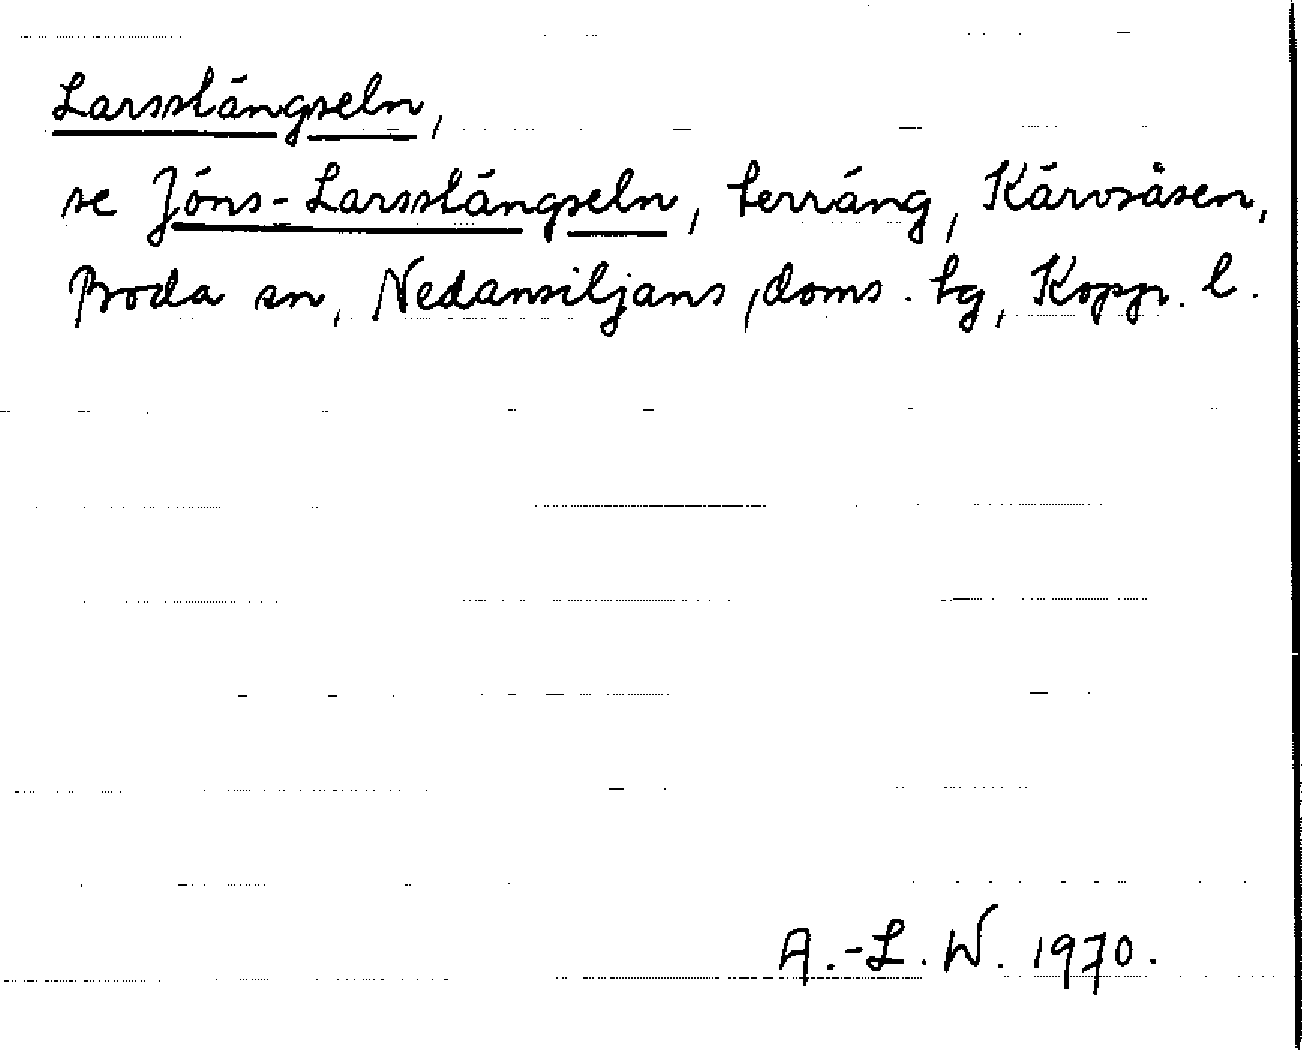 Larsstängseln,
se Jöns-Larsstängseln, terräng, Kärvsåsen,
Boda sn, Nedansiljans, doms. tg, Koppr. l.
A.-L. W. 1970.